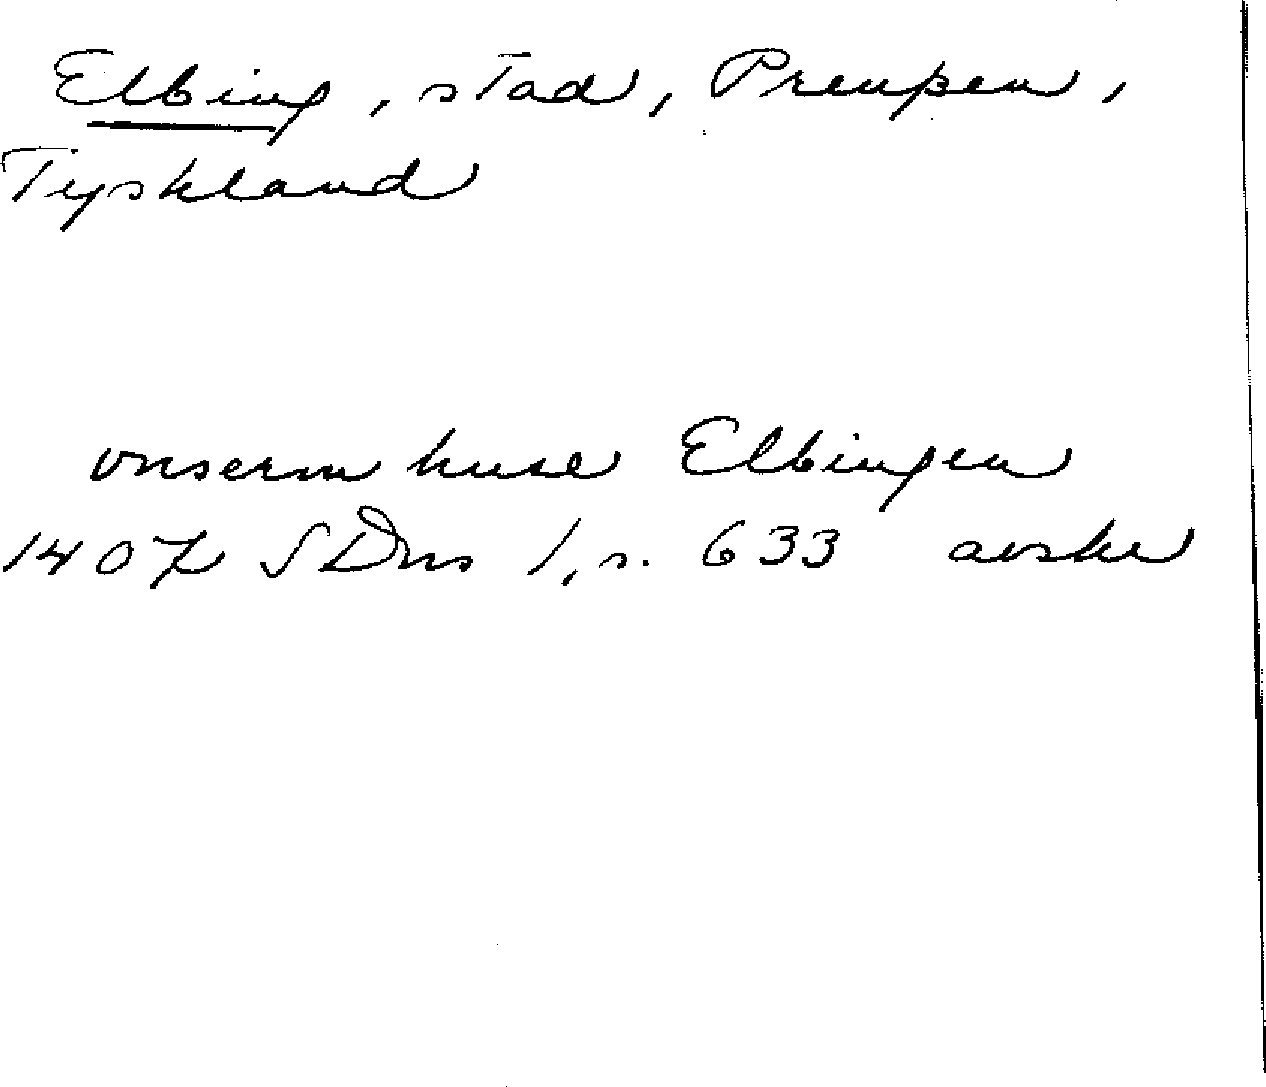 Elbing, stad, Preußen,
Tyskland
vnserm huse Elbingen
1407 SDns 1, s. 633 avskr